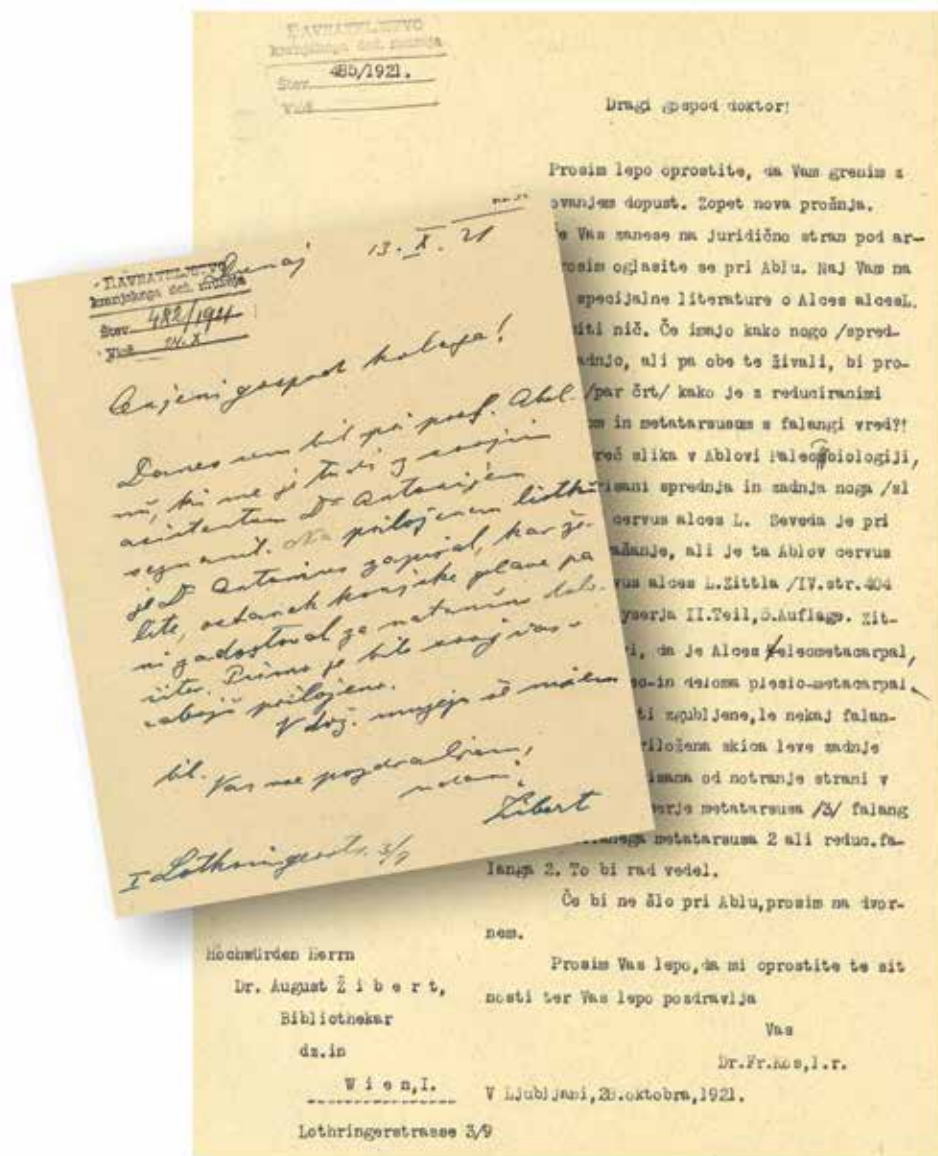 RAVNATELJSTVO
kranjskega dež. muzeja
Štev. 485/1921.
Vlož
Dragi gospod doktor!
Prosim lepo oprostite, da Vam grenim z
ovanjem dopust. Zopet nova prošnja.
Vas zanese na juridično stran pod ar-
rosim oglasite se pri Ablu. Naj Vam na
specijalne literature o Alces alcesL.
iti nič. Če imajo kako nogo /spred-
adnjo, ali pa obe te živali, bi pro-
/par črt/ kako je z reduciranimi
om in metatarsusom s falangi vred?!
reč slika v Ablovi Paleobiologiji,
risani sprednja in zadnja noga /sl
cervus alces L. Seveda je pri
ašanje, ali je ta Ablov cervus
vus alces L.Zittla /IV.str.404
yserja II.Teil,5.Auflage. Zit-
i, da je Alces teleometacarpal,
eo-in deloma plesio-metacarpal
ti zgubljene,le nekaj falan-
riložena skica leve zadnje
isana od notranje strani v
erje metatarsusa /3/ falang
anega metatarsusa 2 ali reduc.fa-
langa 2. To bi rad vedel.
Če bi ne šlo pri Ablu,prosim na dvor-
nem.
Prosim Vas lepo,da mi oprostite te sit
nosti ter Vas lepo pozdravlja
Vas
Dr.Fr.Kos,l.r.
V Ljubljani,28.oktobra,1921.
Hochwürden Herrn
Dr. August Ž i b e r t,
Bibliothekar
dz.in
W i e n,I.
Lothringerstrasse 3/9
RAVNATELJSTVO
kranjskega dež. muzeja
Štev. 482/1921
Vlož 24.X
Dunaj 13.X.21
Cenjeni gospod kolega!
Danes sem bil pri prof. Abel-
nu, ki me je tudi z svojim
asistentom Dr Antonijem
seznanil. Na priloženem listku
je Dr Antonius zapisal, kar že-
lite, ostanek konjske glave pa
ni zadostoval za natančno dolo-
čitev. Pismo je bilo
zaboju priloženo.
V dvoj. muzeju še nisem
bil.
Vas pozdravljam,
udani
Žibert
I Lothringerstr. 3/9